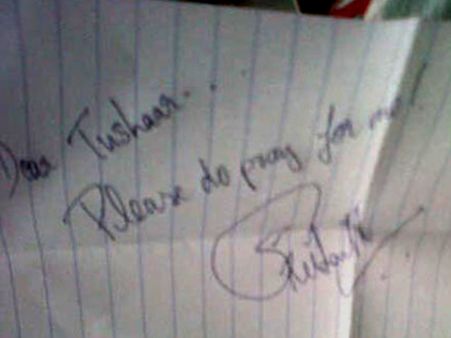 Dear Tushaar...
Please do pray for me!